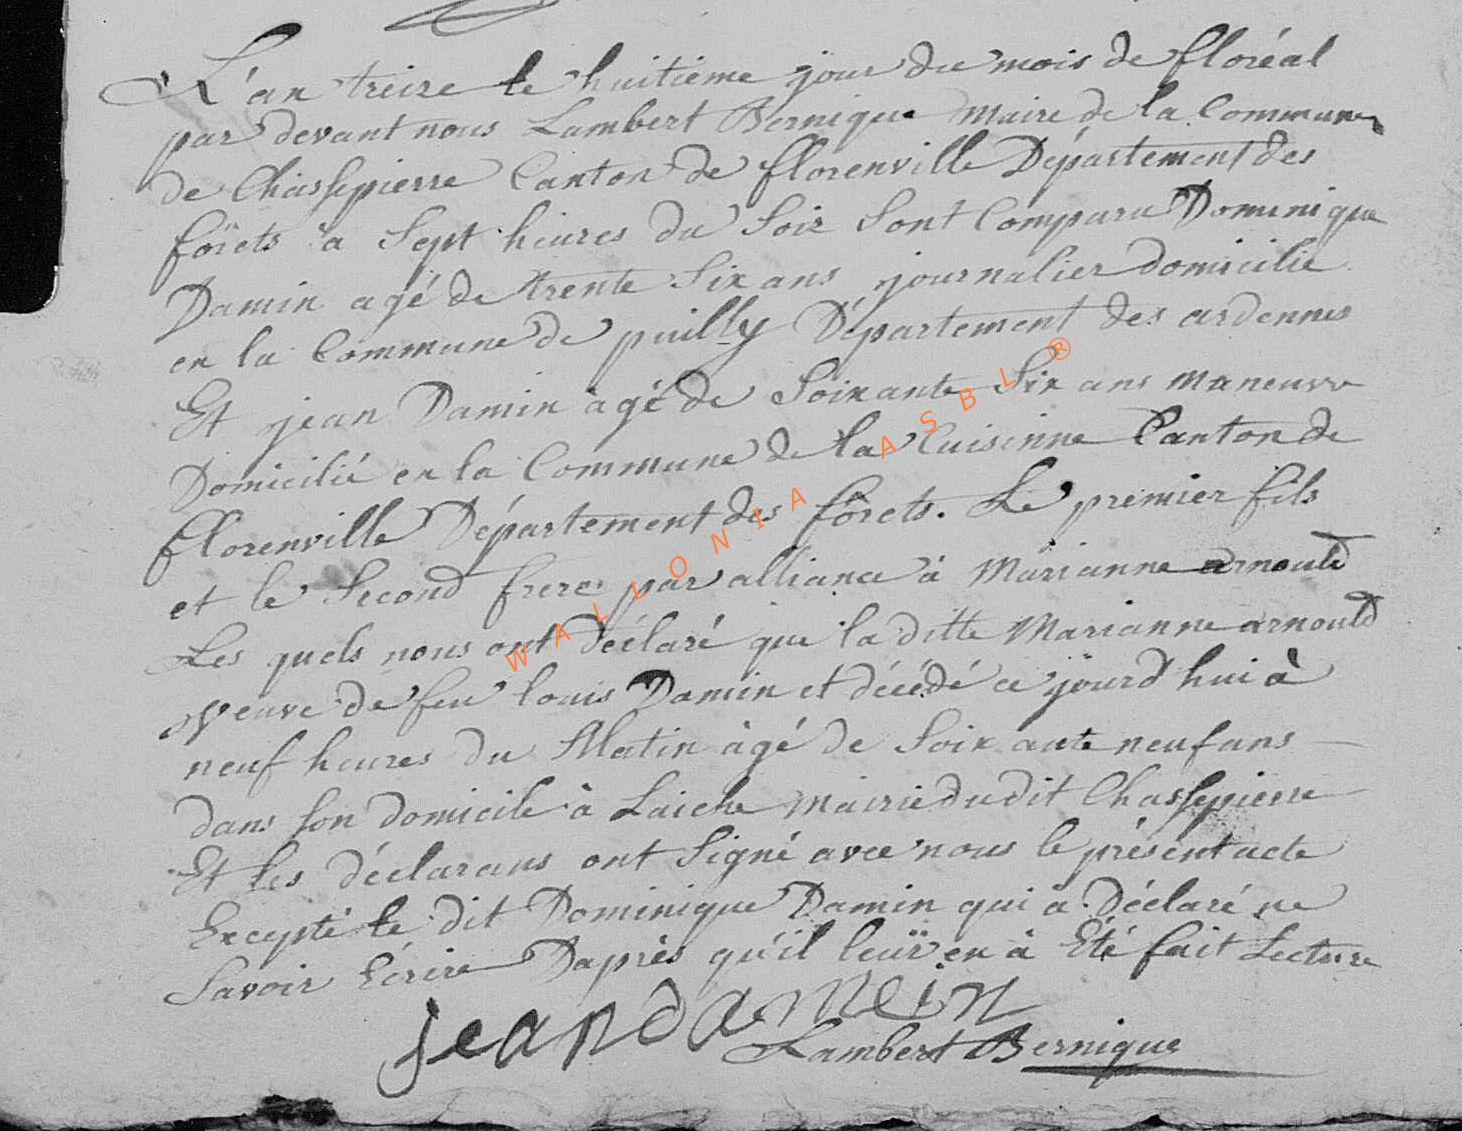 L'an treize le huitieme jour du mois de floréal
par devant nous Lambert Bernique maire de la Commune
de Chassepierre Canton de florenville Département des
forêts à Sept heures du Soir Sont Comparu Dominique
Damin agé de trente Six ans journalier domicilie
en la Commune de puilly Département des ardennes
Et jean Damin àgé de Soixante Six ans maneuvre
Domicilié en la Commune de la Cuisinne Canton de
florenville Département des forêts. Le premier fils
et le Second frere par alliance à Marianne arnould
Les quels nous ont Déclaré que la ditte Marianne arnould
veuve de feu louis Damin et décédé ce jourd'hui à
neuf heures du Matin àgé de Soixante neuf ans
dans son domicile à Laiche mairie du dit Chassepierre
Et les déclarans ont Signé avec nous le présent acte
Excepté le dit Dominique Damin qui à Déclaré ne
Savoir Ecrire Daprès qu'il leur en à Eté fait Lecture
jean damein
Lambert Bernique
WALLONIA ASBL ®